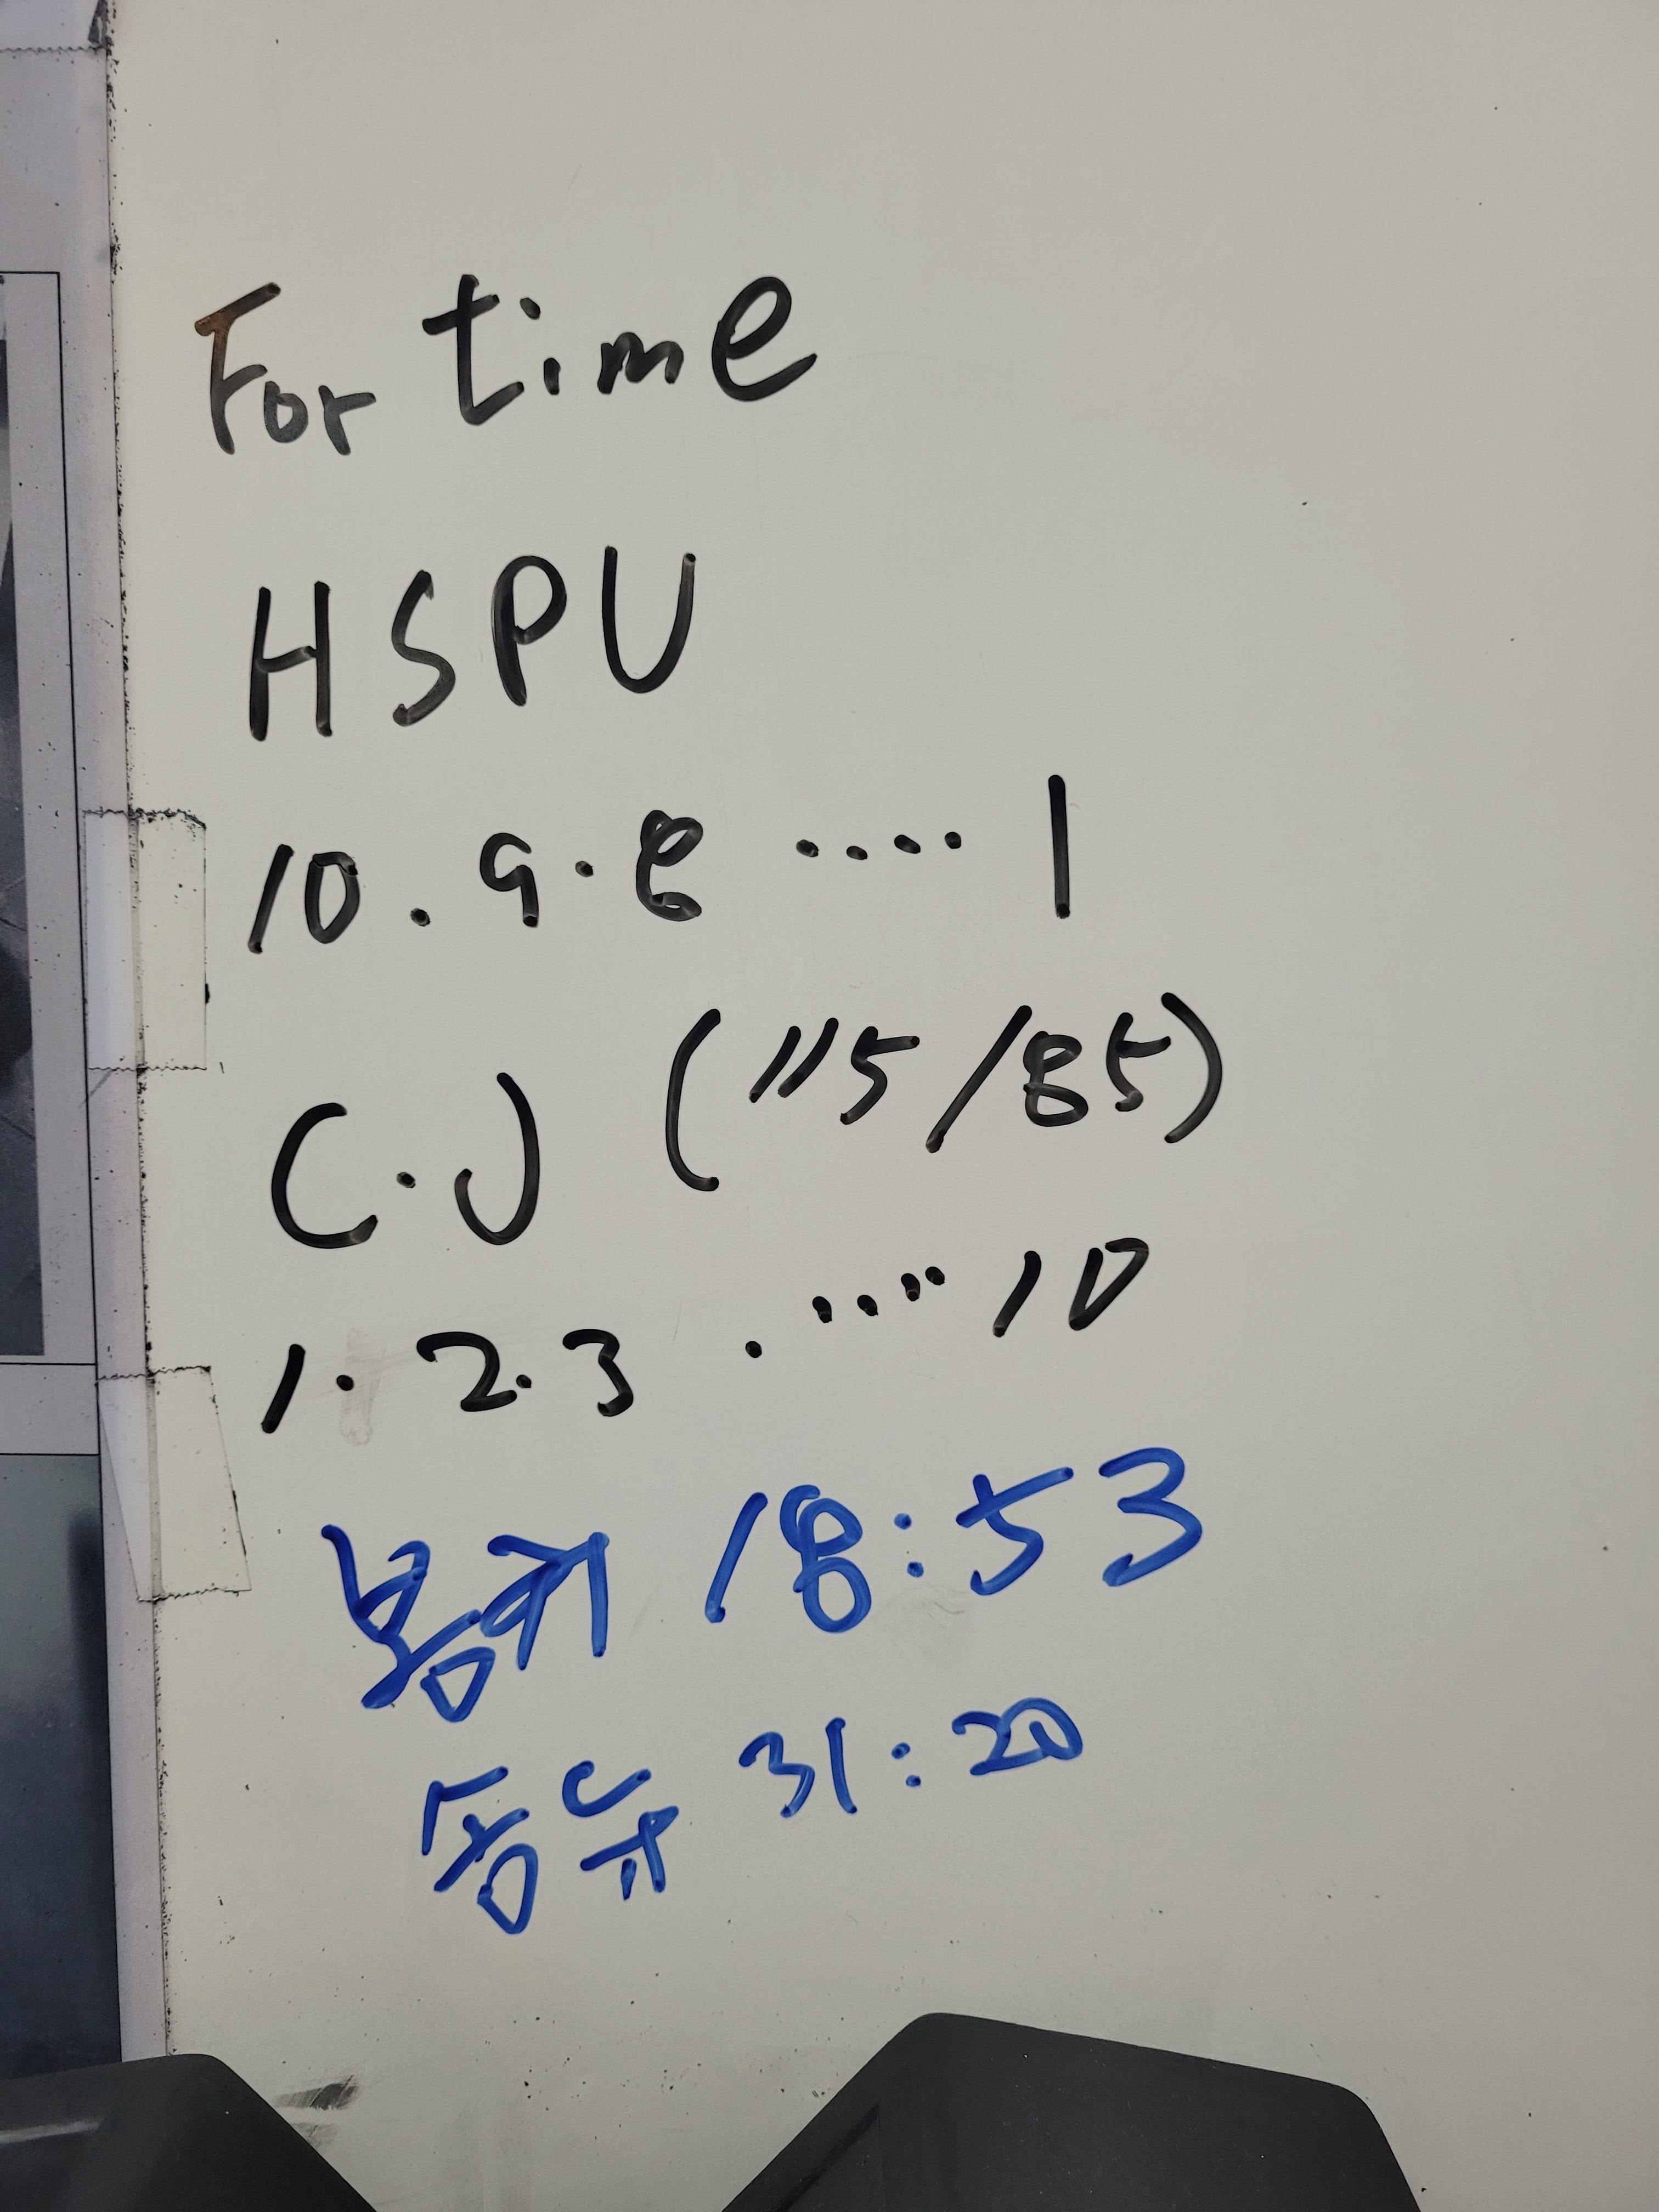 For time
HSPU
10. 9. 8 .... 1
C.J (115/85)
1. 2. 3 ..... 10
18:53
31:20